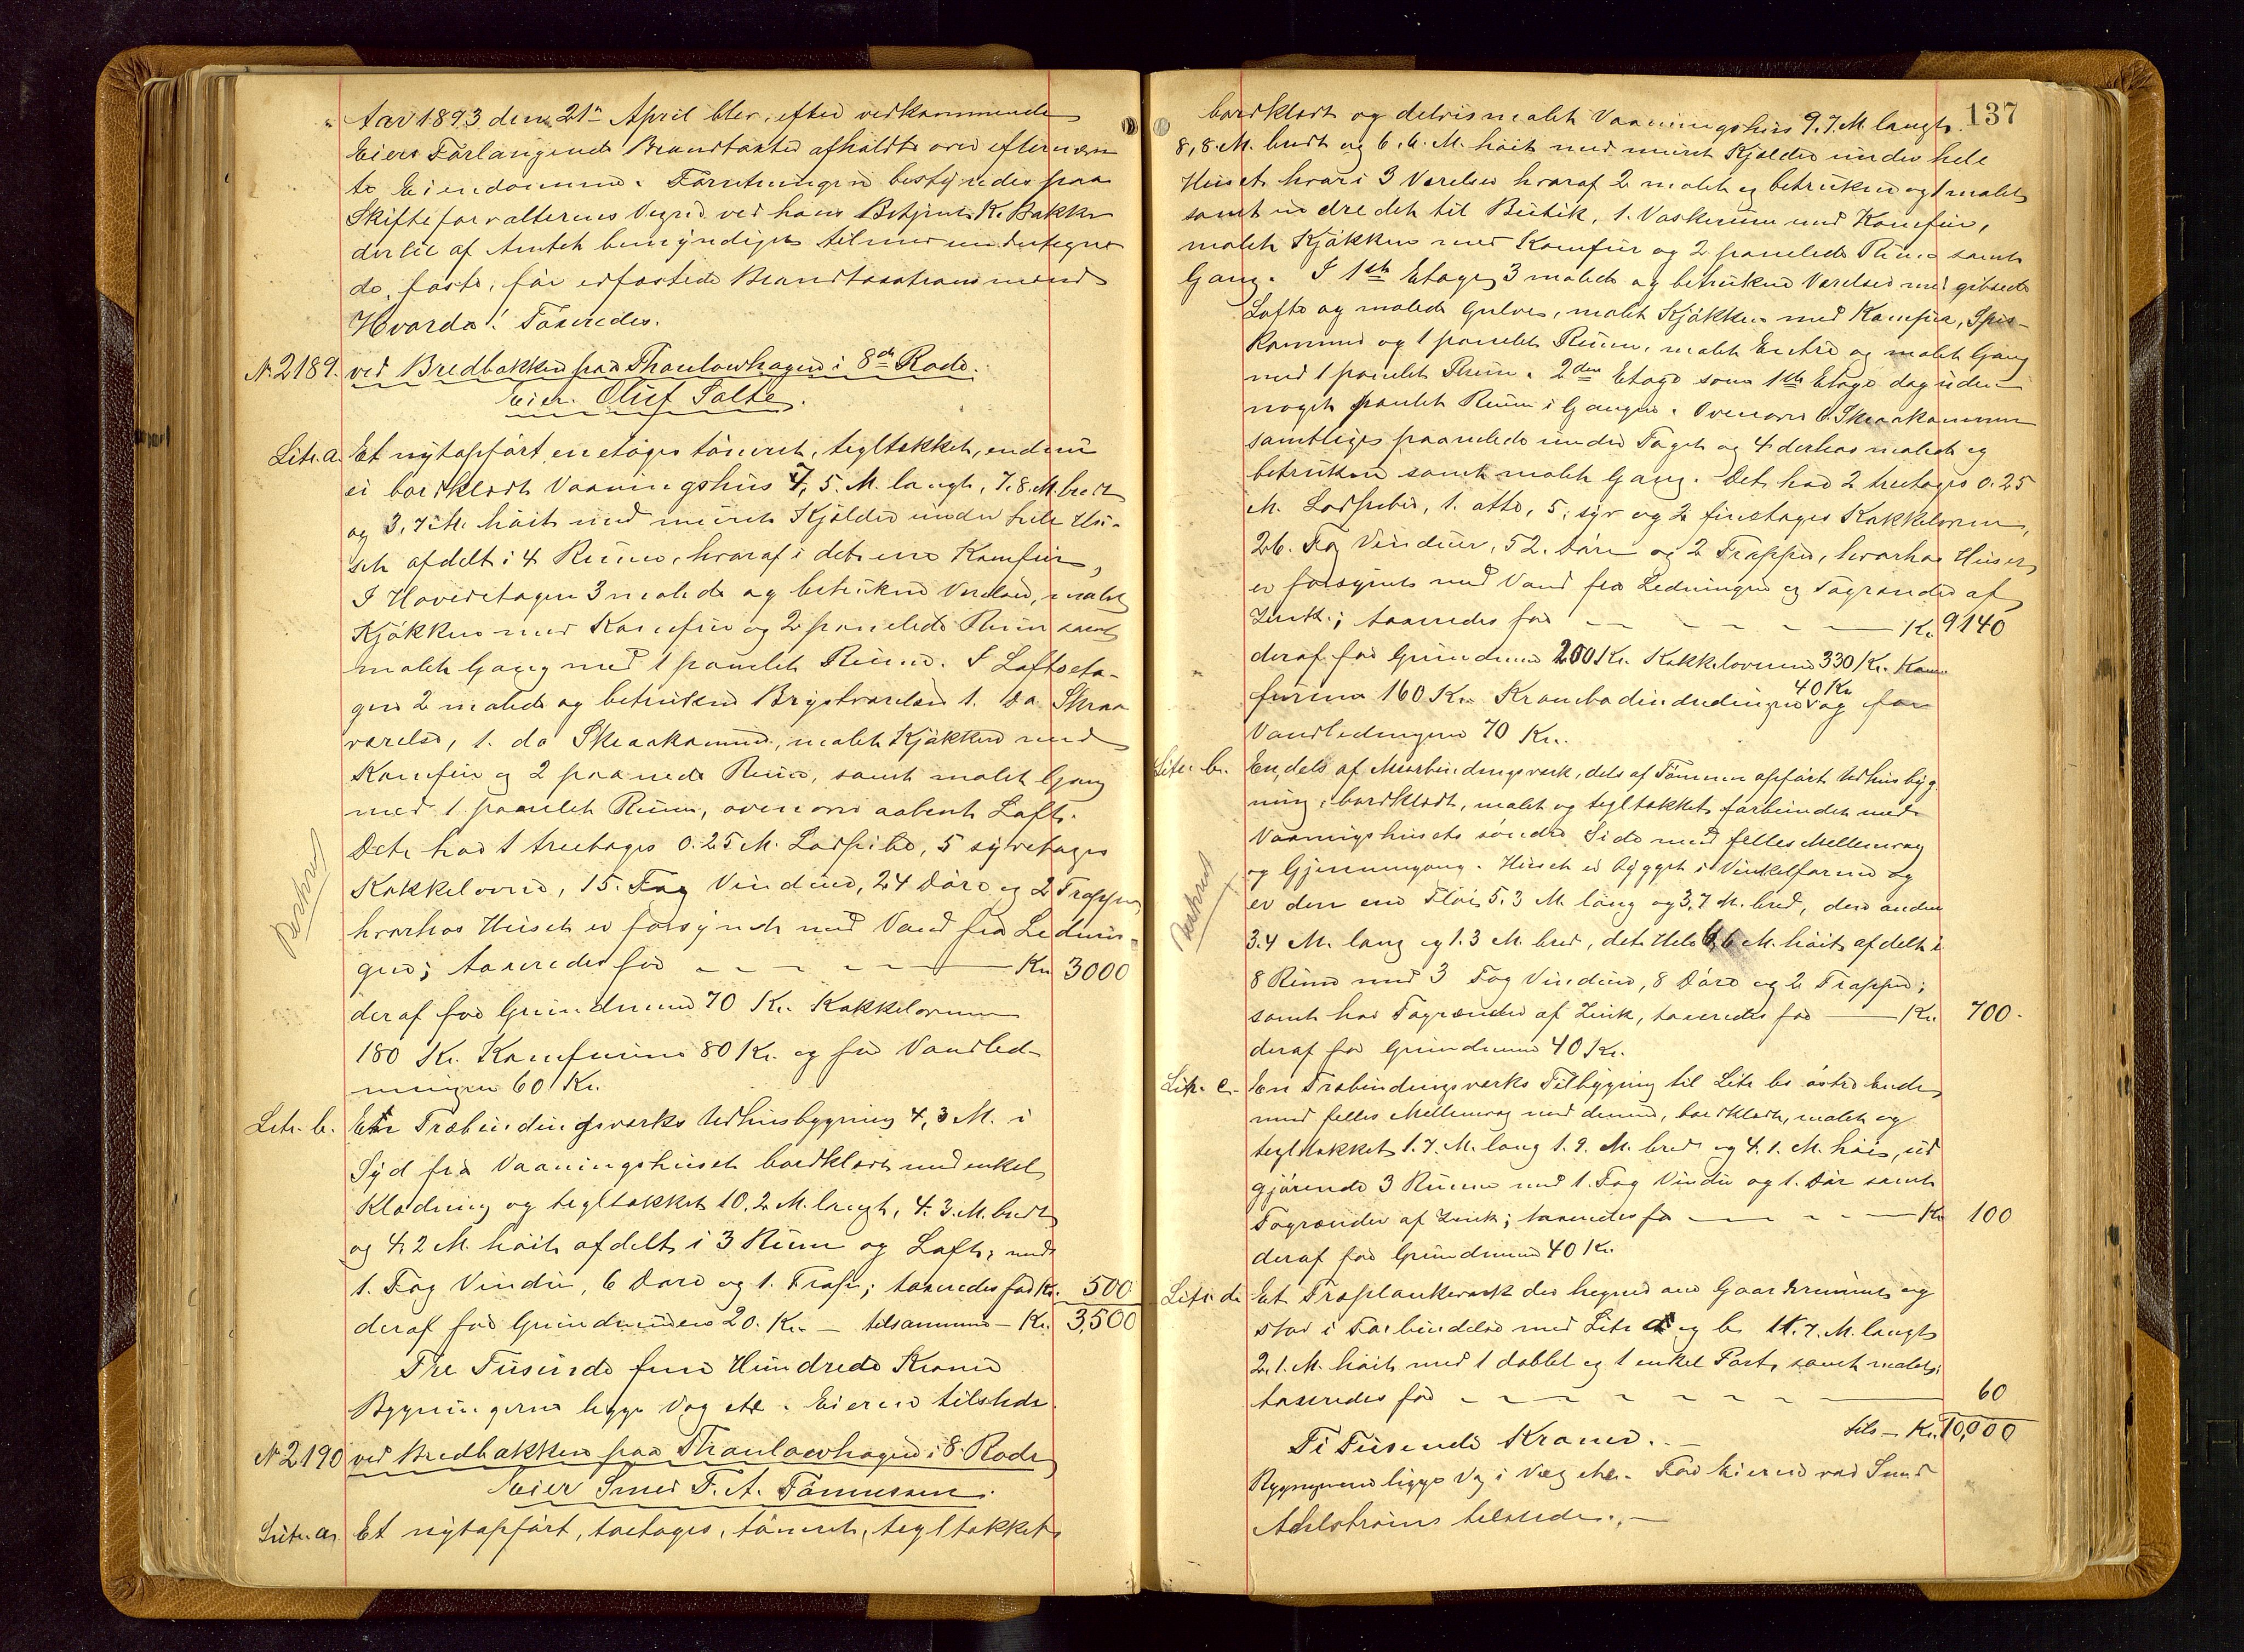 Aar 1893 den 21n April blev, efter vedkommende
Eiers Forlangende Brandtaxter afholdte over eftermævn
te Eiendomme. Forretningen bestyredes paa
Skifteforvalterens Vegne ved hans Betjent K. Bakke
dertil af Amtet bemyndiget tilmed undertegne
de, faste, før edfæstede Brandtaxationsmænd
Hvorda! Taxeredes.
No 2189. ved Bredbakken paa Thaulowhagen i 8de Rode.
Eier. Oluf Salte.
Litr. a. Et nytopført, enetages tømret, tegltækket, endnu
ei bordklædt Vaaningshus 7,5. M. langt, 7.8. M. bredt
og 3,7 M. høit med muret Kjelder under hele Hu-
set afdelt i 4 Rum, hvoraf i det ene Komfur,
I Hovedetagen 3 malede og betrukne Værelser, malet
Kjøkken med Komfur og 2 panelede Rum samt
malet Gang med 1 panelet Rum. I Loftseta-
gen 2 malede og betrukne Brystværelser 1. do Skraa
værelse, 1. do Skraakammer, malet Kjøkken med
Komfur og 2 paanede Rum, samt malet Gang
med 1. panelet Rum, ovenover aabent Loft.
Det har 1 treetages 0.25 M. Ladpibe, 5 syvetages
Kakkelovne, 15. Fag Vinduer, 24 Døre og 2 Trapper,
hvorhos Huset er forsynet med Vand fra Lednin-
gen; taxeredes for — Kr 3000
deraf for Grundmuren 70 Kr. Kakkelovnene
180 Kr. Komfurene 80 Kr. og for Vandled-
ningen 60 Kr.
Destrued
Litr. b. En Træbindingsverks Udhusbygning 4,3 M. i
Syd fra Vaaningshuset bordklædt med enkel
Klædning og tegltækket 10.2 M. langt, 4.3. M. bredt
og 4.2 M. høit afdelt i 3 Rum og Loft, med
1. Fag Vindu, 6 Døre og 1. Trap; taxeredes for Kr. 500
deraf for Grundmuren 20. Kr. — tilsammen — Kr. 3,500
Tre Tusinde fem Hundrede Kroner
Bygningerne ligge Væg etc. Eieren tilstede.
No 2190 ved Bredbakken paa Thaulowhagen i 8. Rode
Eier Smed F. A. Tønnessen.
Litr. a. Et nytopført, toetages, tømret, tegltækket
137
bordklædt og delvis malet Vaaningshus 9.7. M. langt.
8,8. M. bredt og 6.6. M. høit med muret Kjelder under hele
Huset hvori 3 Værelser hvoraf 2 malet og betrukne og 1 malet
samt indredet til Butik, 1. Vaskerum med Komfur,
malet Kjøkken med Komfur og 2 panelede Rum samt
Gang. I 1ste Etage 3 malede og betrukne Værelser med gibsede
Lofte og malede Gulve, malet Kjøkken med Komfur, Spis-
kammer og 1 panelet Rum, malet Entre og malet Gang
med 1 panelet Rum. 2den Etage som 1ste Etage dog uden
noget panelet Rum i Gangen. Ovenover 6. Skraakammer
samtlige paanelede under Taget og 4 derhos malede og
betrukne samt malet Gang. Det har 2 treetages 0.25
M. Ladpiber, 1. otte, 5, syv og 2 firetages Kakkelovne,
26. Fag Vinduer, 52. Døre og 2 Trapper, hvorhos Huset
er forsynet med Vand fra Ledningen og Tagrender af
Zink; taxeredes for — Kr. 9140
deraf for Grundmuren 200 Kr. Kakkelovnene 330 Kr. Kom
furene 160 Kr. Krambodindredningen 40 Kr og for
Vandledningen 70 Kr.
Litr. b. En, dels af Murbindingsverk, dels af Tømmer opført Udhusbyg
ning, bordklædt, malet og tegltækket forbunden med
Vaaningshusets søndre Side med felles Mellemvæg
og Gjennemgang. Huset er bygget i Vinkelform og
er den ene Fløi 5.3 M. lang og 3,7 M. bred, den anden
3.4 M. lang og 1.3 M. bred, det Hele 6,6 M. høit afdelt i
8 Rum med 3 Fag Vinduer, 8 Døre og 2 Trapper;
samt har Tagrender af Zink, taxeredes for — Kr. 700.
deraf for Grundmuren 40 Kr.
Destrued
Litr. c. En Træbindingsverks Tilbygning til Litr b. østre Ende
med felles Mellemvæg med denne, bordklædt, malet og
tegltækket 1.7. M. lang 1.9. M. bred og 4.1. M. høi, ud
gjørende 3 Rum med 1. Fag Vindu og 1. Dør samt
Tagrender af Zink; taxeredes for — Kr 100
deraf for Grundmuren 40 Kr.
Litr. d. Et Træplankeverk der hegner om Gaardsrummet og
staar i Forbindelse med Litr a og b. 11.7. M. langt
2.1. M. høit med 1 dobbel og 1 enkel Port, samt malet;
taxeredes for — 60
Ti Tusende Kroner. — tils — Kr. 10,000
Bygningerne ligge Væg i Væg etc. For Eieren var Smed
Adelstrøms tilstede. —